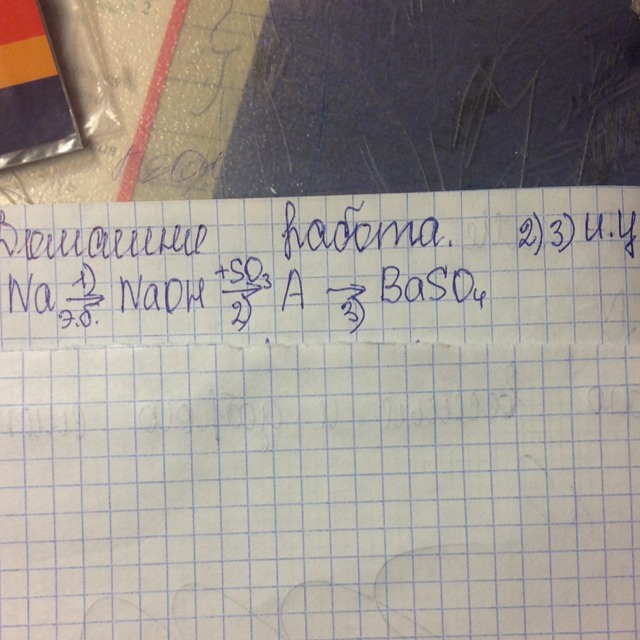 Домашние работа. 2) 3) и.у
Na 1)→ э.б. NaOH +SO₃→ 2) A → 3) BaSO₄